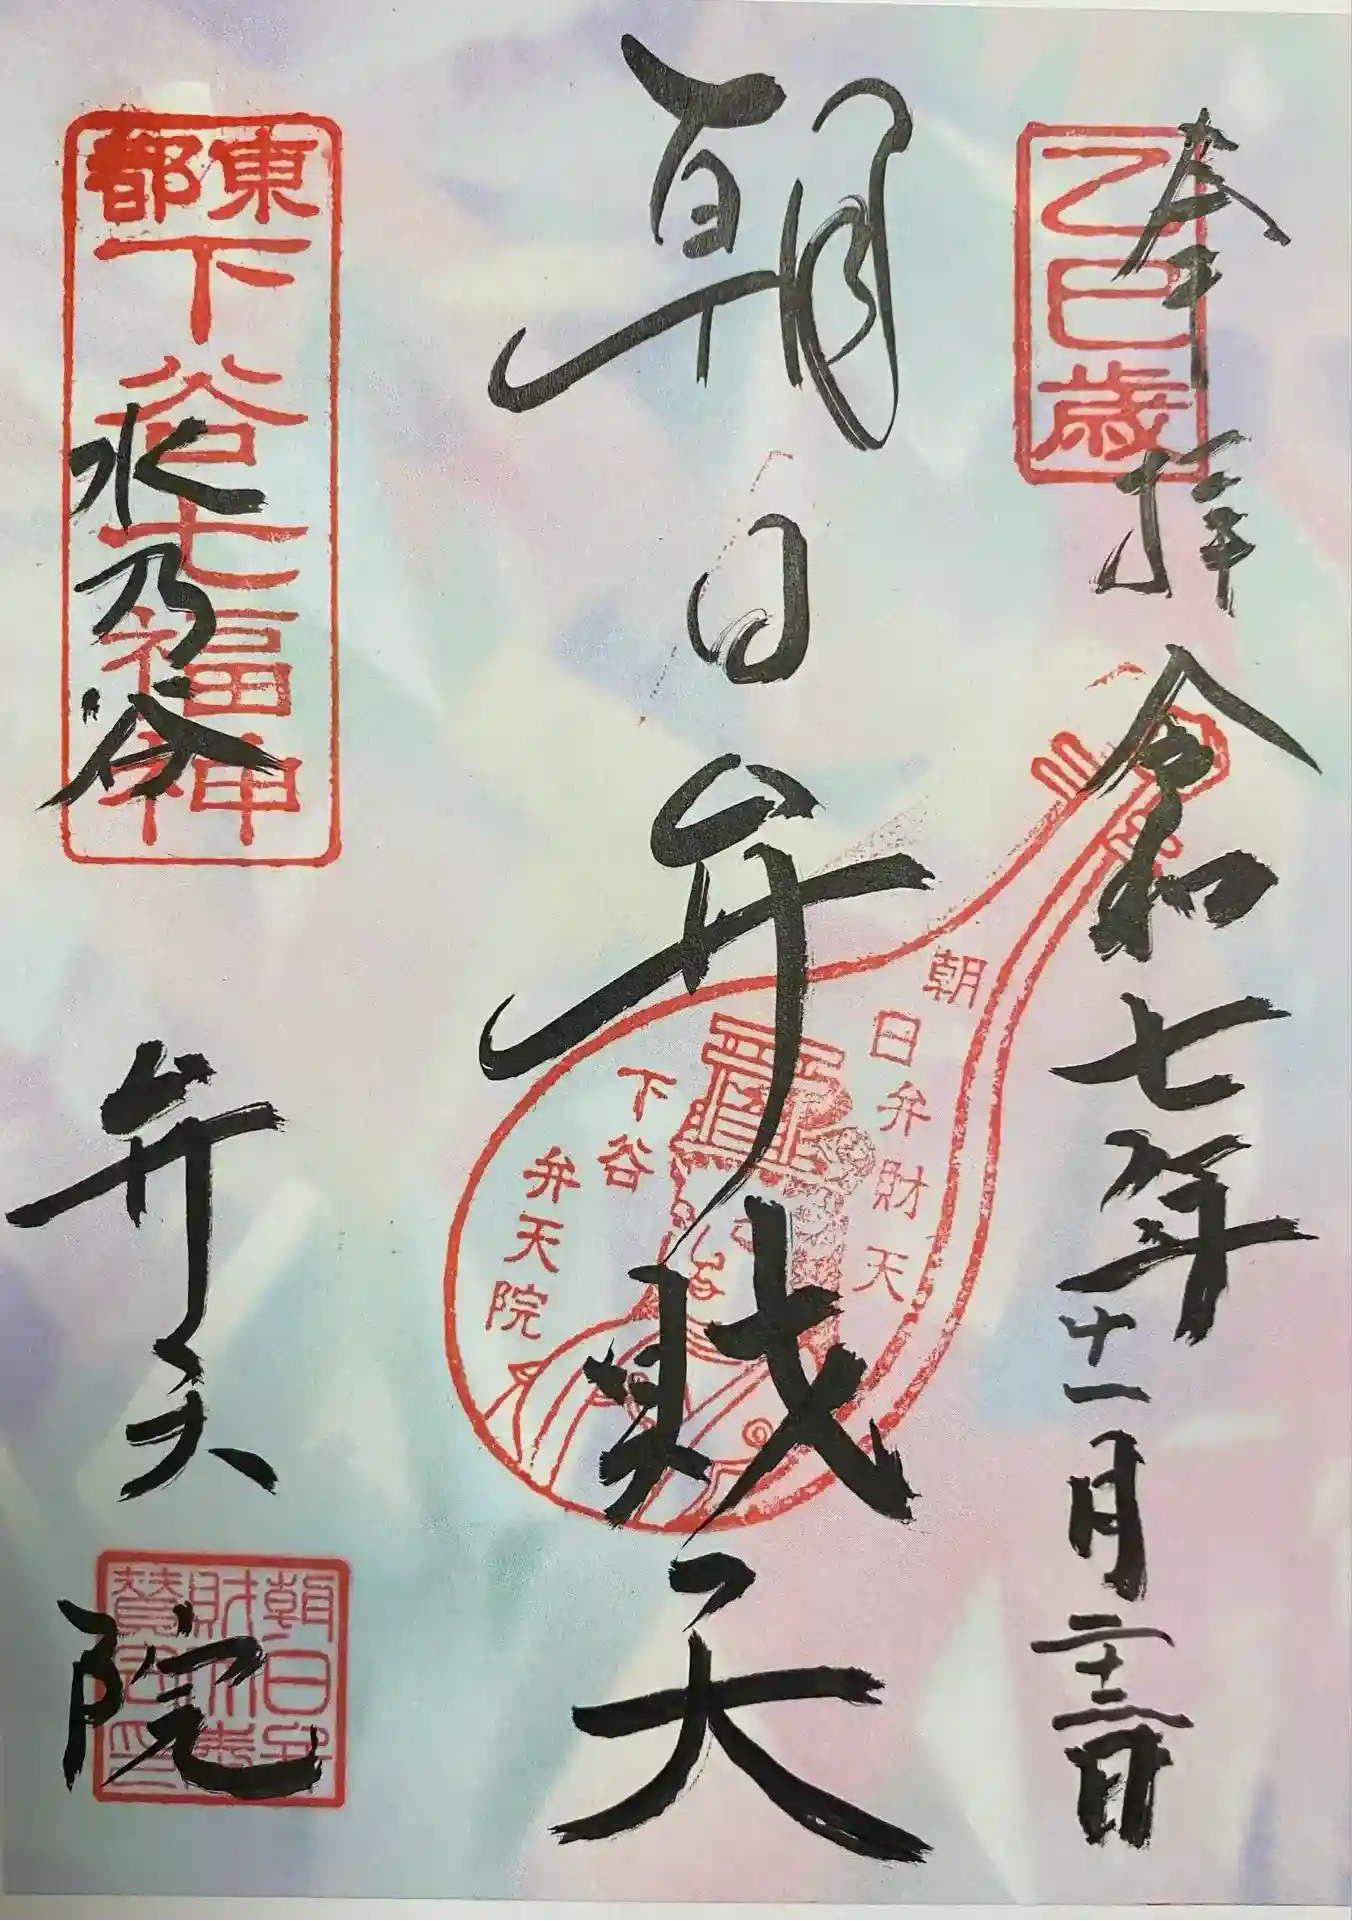 奉拝
令和七年十一月二十三日
乙巳歳
朝日弁財天
朝日弁財天
下谷
弁天院
東都
下谷七福神
水乃谷
弁天院
朝日弁
財天